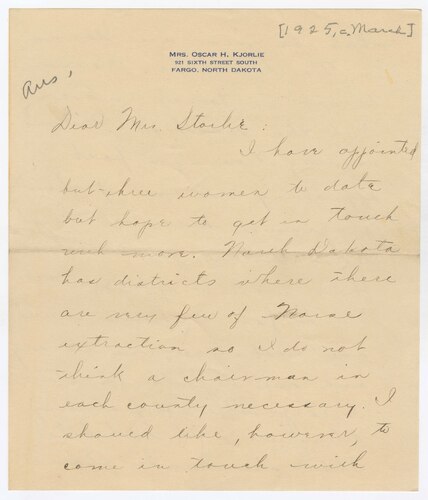 [1925, c. March]
MRS. OSCAR H. KJORLIE
921 SIXTH STREET SOUTH
FARGO, NORTH DAKOTA
Ans,
Dear Mrs. Storlie:
I have appointed
but three women to date
but hope to get in touch
with more. North Dakota
has districts where there
are very few of Norse
extraction so I do not
think a chairman in
each county necessary. I
should like, however, to
come in touch with